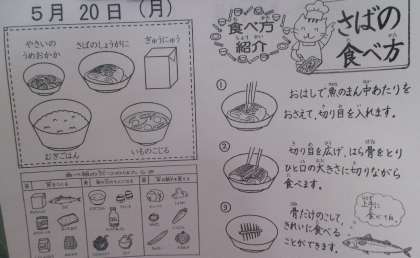 5月20日(月)
やさいの
うめおかか
さばのしょうがに
ぎゅうにゅう
むぎごはん
いものこじる
食べ方
紹介
さばの
食べ方
①
おはしで魚のまん中あたりを
おさえて、切り目を入れます。
②
切り目を広げ、はら骨をとり
ひと口の大きさに切りながら
食べます。
③
骨だけのこして、
きれいに食べる
ことができます。
上手に
食べてね